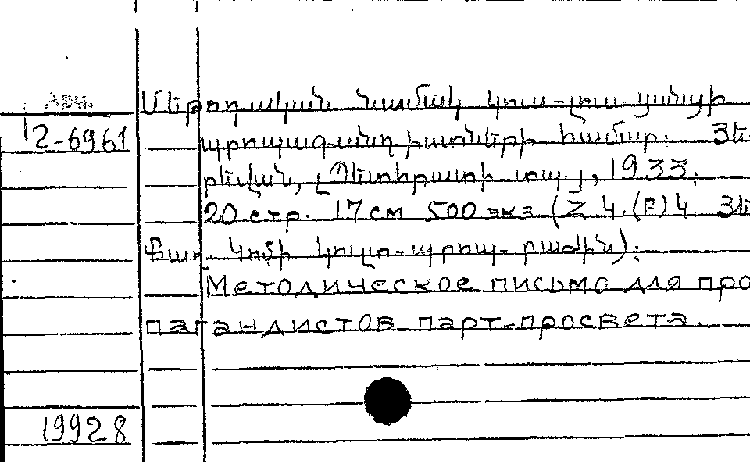 Արմ.
Մեթոդական նամակ կուս-լուս ցանցի
2-6961
պրոպագանդիստների համար. Յե-
րևան, [Պետհրատի տպ.], 1933.
20 стр. 17 см 500 экз (Հ Կ.(բ)Կ Յեր
Քաղ. Կոմի կուլտ-պրոպ-բաժին).
Методическое письмо для про
пагандистов парт-просвета.
19928